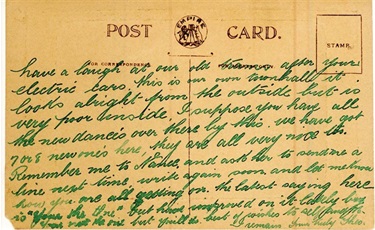 POST CARD.
EMPIRE
FOR CORRESPONDENCE
STAMP
have a laugh at our old after your
electric cars, this is our own townhall it
looks alright from the outside but is
very poor inside. I suppose you have all
the new dances over there by this. we have got
7 or 8 new ones here they are all very nice Les.
Remember me to Mother, and ask her to send me a
line next time. write again soon, and let me know
how you are all getting on. the latest saying here
is "You're the One" but have improved on it lately
You're not the one but you'll do best of wishes to all
I remain Yours Truly